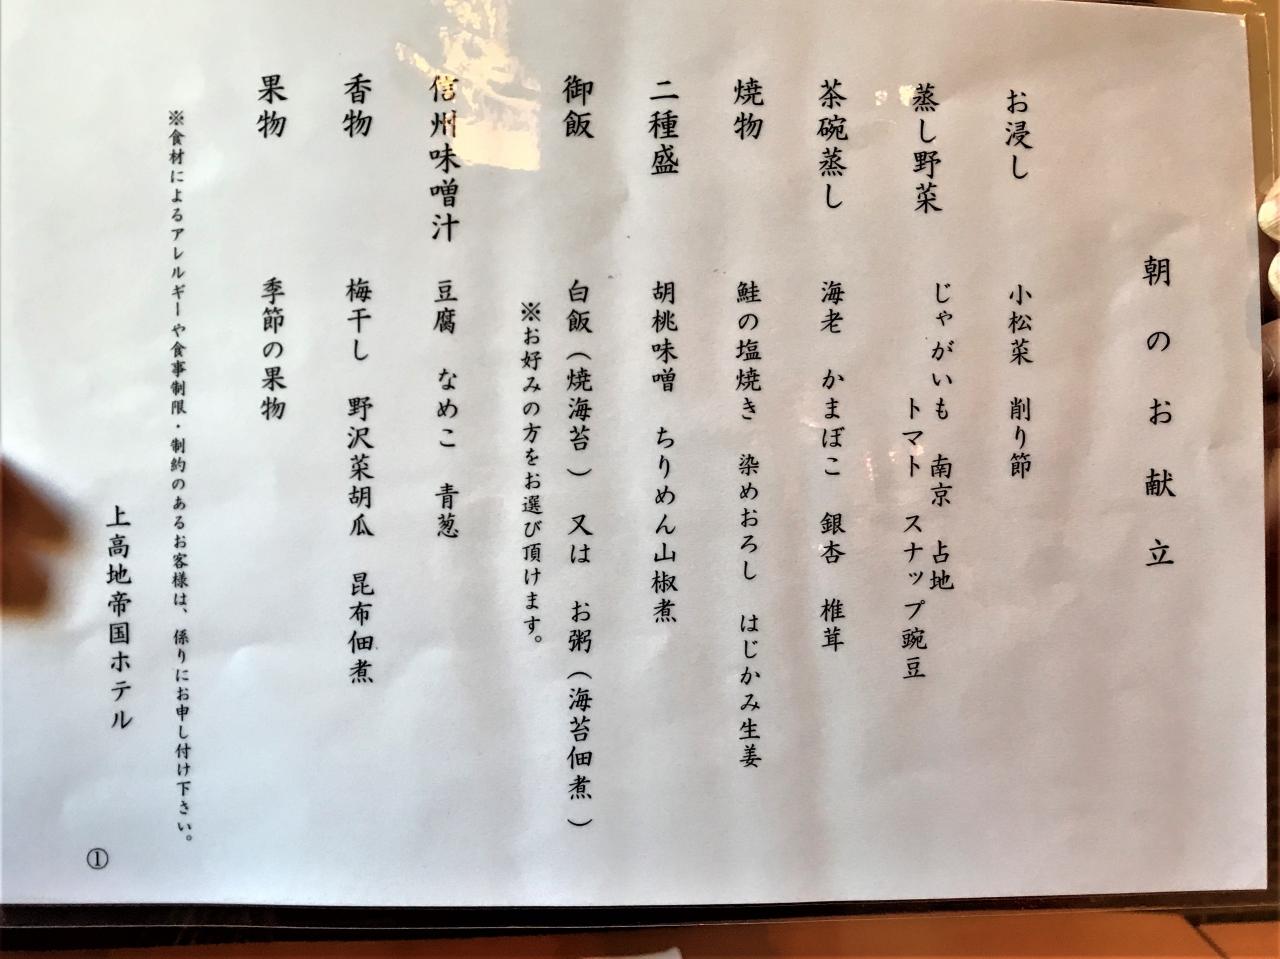 朝のお献立
お浸し　小松菜　削り節
蒸し野菜　じゃがいも　南京　占地
トマト　スナップ豌豆
茶碗蒸し　海老　かまぼこ　銀杏　椎茸
焼物　鮭の塩焼き　染めおろし　はじかみ生姜
二種盛　胡桃味噌　ちりめん山椒煮
御飯　白飯（焼海苔）　又は　お粥（海苔佃煮）
※お好みの方をお選び頂けます。
信州味噌汁　豆腐　なめこ　青葱
香物　梅干し　野沢菜胡瓜　昆布佃煮
果物　季節の果物
※食材によるアレルギーや食事制限・制約のあるお客様は、係りにお申し付け下さい。
上高地帝国ホテル
①